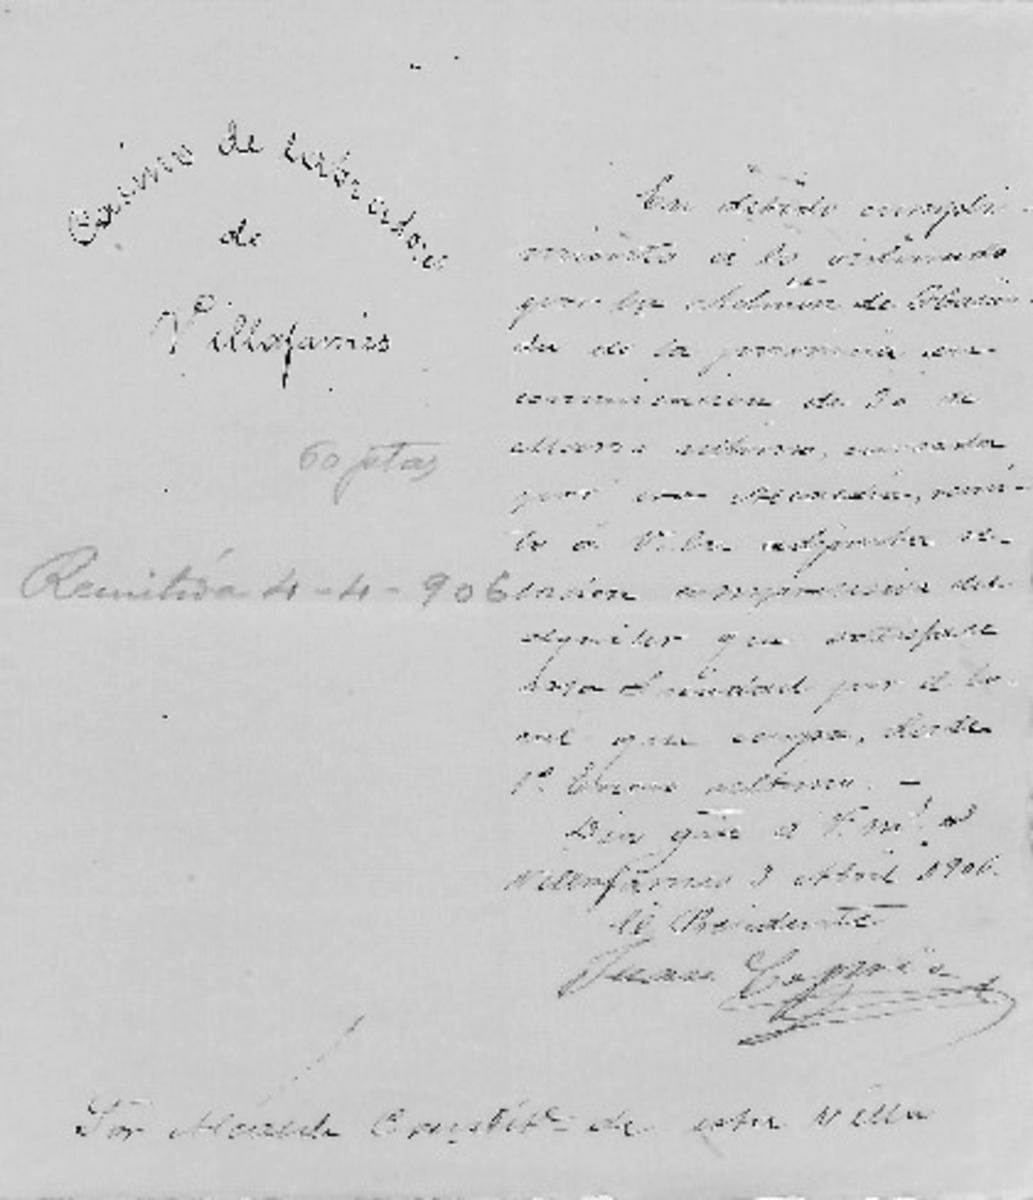 Casino de Labradores
de
Villafamés
60 ptas
Remitida 4-4-906
En debido cumpli-
miento á lo ordenado
por la Admón de Hacien-
da de la provincia en
comunicacion de 30 de
Marzo ultimo, cursada
por esa Alcaldia, remi-
to á V. la adjunta re-
lacion comprensiva del
alquiler que satisface
esta Sociedad por el lo-
cal que ocupa, desde
1º Enero ultimo. -
Dios gue á V. m.s a.s
Villafamés 3 Abril 1906.
El Presidente
Juan
Sor Alcalde Constitl. de esta Villa